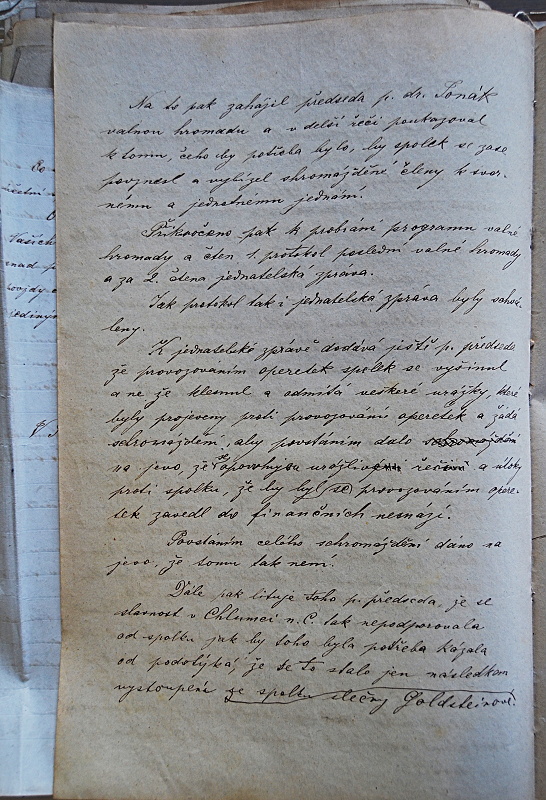 Na to pak zahájil předseda p. dr. Šonák
valnou hromadu a v delší řeči poukazoval
k tomu, čeho by potřeba bylo, by spolek se zase
povznesl a vybízel shromážděné členy k svor-
nému a jednotnému jednání.
Přikročeno pak k probírání programu valné
hromady a čten 1. protokol poslední valné hromady
a za 2. čtena jednatelská zpráva.
Jak protokol tak i jednatelská zpráva byly schvá-
leny.
K jednatelské zprávě dodává ještě p. předseda
že provozováním operetek spolek se vyšinul
a ne že klesnul a odmítá veškeré urážky, které
byly projeveny proti provozování operetek a žádá
schromáždění, aby povstáním dalo
na jevo, že a útoky
proti spolku, že by byl (se) provozováním opere-
tek zavedl do finančních nesnází.
Povstáním celého schromáždění dáno na
jevo, že tomu tak není.
Dále pak lituje toho p. předseda, že se
slavnost v Chlumci n. C. tak nepodporovala
od spolku jak by toho byla potřeba kázala
od podotýká, že se to stalo jen následkem
vystoupení ze spolku slečny Goldsteinové.